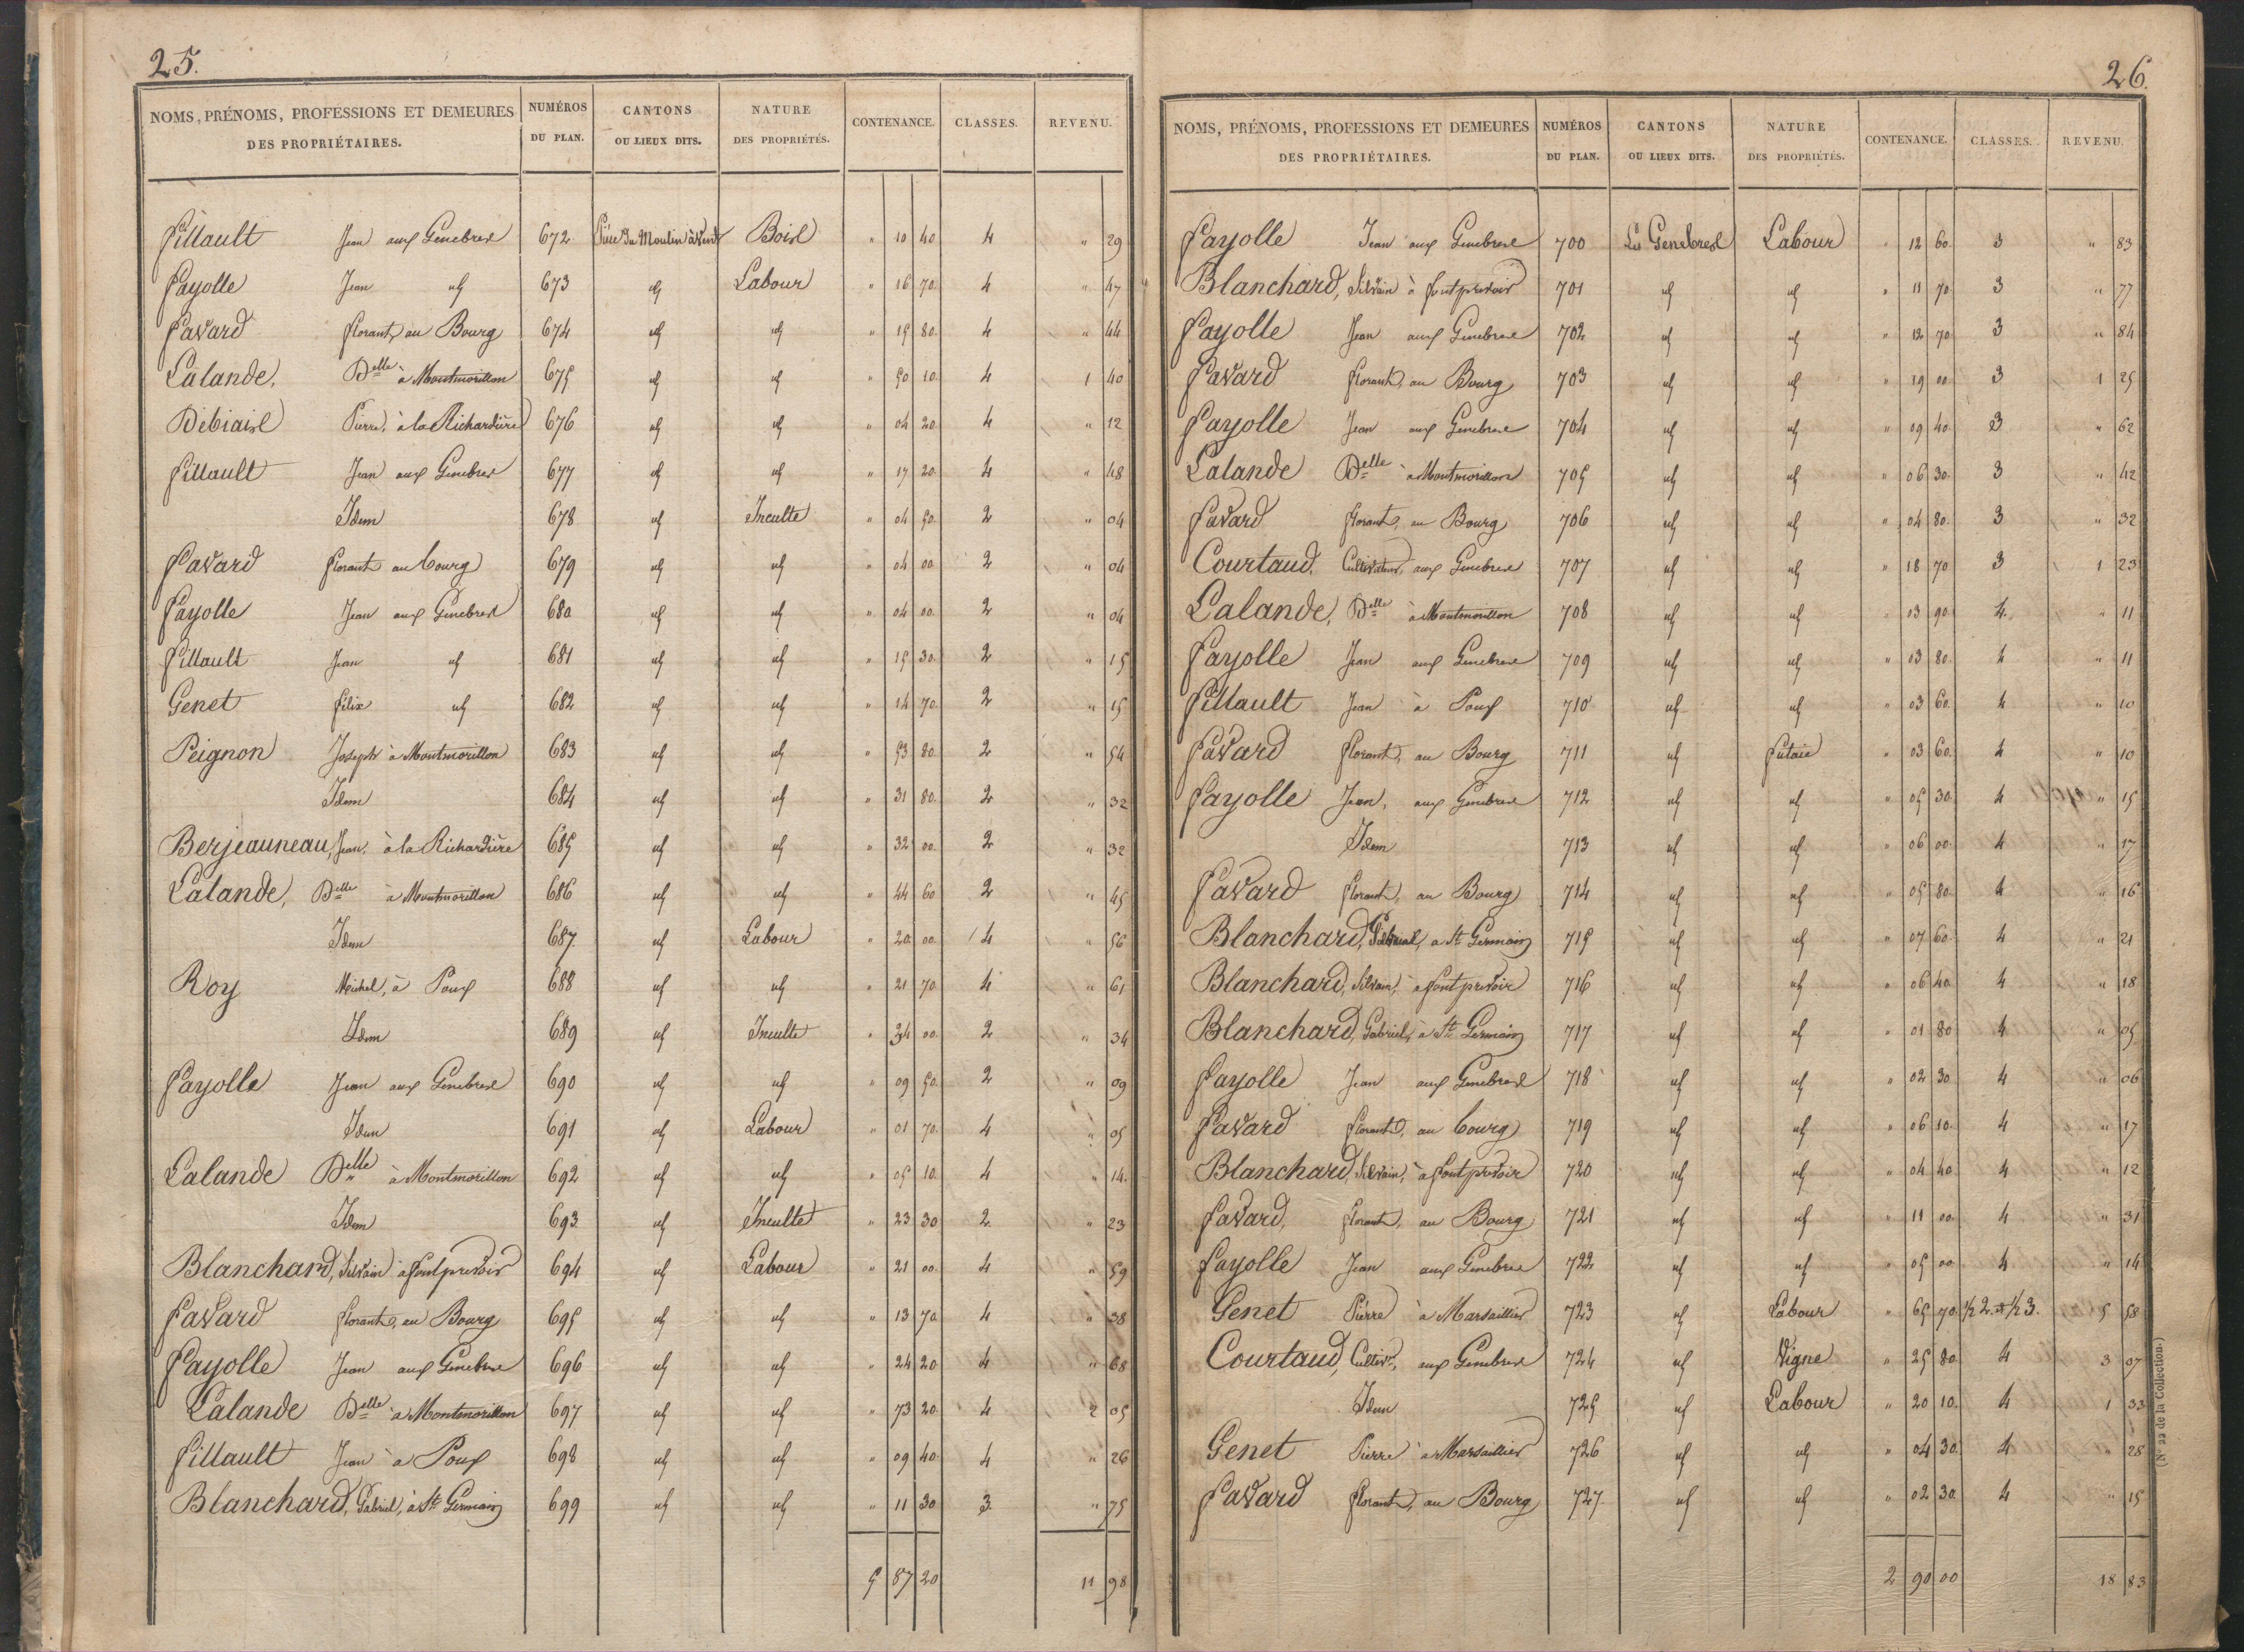 25.
NOMS, PRÉNOMS, PROFESSIONS ET DEMEURES DES PROPRIÉTAIRES. NUMÉROS DU PLAN. CANTONS OU LIEUX DITS. NATURE DES PROPRIÉTÉS. CONTENANCE. CLASSES. REVENU.
Fillault Jean aux Genebres 672 du Moulin à Vent Bois " 10 40 4 " 29
Fayolle Jean id 673 id Labour " 16 70 4 " 47
Favard florant au Bourg 674 id id " 15 80 4 " 44
Lalande, Delle à Montmorillon 675 id id " 50 10 4 1 40
Débiais Pierre, à la Richardière 676 id id " 04 20 4 " 12
Fillault Jean aux Genebres 677 id id " 17 20 4 " 48
Idem 678 id Inculte " 04 50 2 " 04
Favard florant au bourg 679 id id " 04 00 2 " 04
Fayolle Jean aux Genebres 680 id id " 04 00 2 " 04
Fillault Jean id 681 id id " 15 30 2 " 15
Genet félix id 682 id id " 14 70 2 " 15
Peignon Joseph à Montmorillon 683 id id " 53 80 2 " 54
Idem 684 id id " 31 80 2 " 32
Berjeauneau, Jean, à la Richardière 685 id id " 32 00 2 " 32
Lalande, Delle à Montmorillon 686 id id " 44 60 2 " 45
Idem 687 id Labour " 20 00 4 " 56
Roy Michel, à Poux 688 id id " 21 70 4 " 61
Idem 689 id Inculte " 34 00 2 " 34
Fayolle Jean aux Genebres 690 id id " 09 50 2 " 09
Idem 691 id Labour " 01 70 4 " 05
Lalande Delle à Montmorillon 692 id id " 05 10 4 " 14
Idem 693 id Inculte " 23 30 2 " 23
Blanchard, Silvain à fontprevoir 694 id Labour " 21 00 4 " 59
Favard florant, au Bourg 695 id id " 13 70 4 " 38
Fayolle Jean aux Genebres 696 id id " 24 20 4 " 68
Lalande Delle à Montmorillon 697 id id " 73 20 4 2 05
Fillault Jean à Poux 698 id id " 09 40 4 " 26
Blanchard, Gabriel, à St Germain 699 id id " 11 30 3 " 75
5 87 20 11 98
26.
NOMS, PRÉNOMS, PROFESSIONS ET DEMEURES DES PROPRIÉTAIRES. NUMÉROS DU PLAN. CANTONS OU LIEUX DITS. NATURE DES PROPRIÉTÉS. CONTENANCE. CLASSES. REVENU.
Fayolle Jean aux Genebres 700 Les Genebres Labour " 12 60 3 " 83
Blanchard, Silvain à fontprevoir 701 id id " 11 70 3 " 77
Fayolle Jean aux Genebres 702 id id " 12 70 3 " 84
Favard florant, au Bourg 703 id id " 19 00 3 1 25
Fayolle Jean aux Genebres 704 id id " 09 40 3 " 62
Lalande Delle à Montmorillon 705 id id " 06 30 3 " 42
Favard florant, au Bourg 706 id id " 04 80 3 " 32
Courtaud, Cultivateur, aux Genebres 707 id id " 18 70 3 1 23
Lalande, Delle à Montmorillon 708 id id " 03 90 4 " 11
Fayolle Jean aux Genebres 709 id id " 03 80 4 " 11
Fillault Jean à Poux 710 id id " 03 60 4 " 10
Favard florant, au Bourg 711 id Futaie " 03 60 4 " 10
Fayolle Jean, aux Genebres 712 id id " 05 30 4 " 15
Idem 713 id id " 06 00 4 " 17
Favard florant, au Bourg 714 id id " 05 80 4 " 16
Blanchard, à St Germain 715 id id " 07 60 4 " 21
Blanchard, Silvain, à fontprevoir 716 id id " 06 40 4 " 18
Blanchard, Gabriel, à St Germain 717 id id " 01 80 4 " 05
Fayolle Jean aux Genebres 718 id id " 02 30 4 " 06
Favard florant, au bourg 719 id id " 06 10 4 " 17
Blanchard, Silvain, à fontprevoir 720 id id " 04 40 4 " 12
Favard, florant, au Bourg 721 id id " 11 00 4 " 31
Fayolle Jean aux Genebres 722 id id " 05 00 4 " 14
Genet Pierre à Marsaillier 723 id Labour " 65 70 ½ 2. et ½ 3. 5 58
Courtaud, Cultivr, aux Genebres 724 id Vigne " 25 80 4 3 07
Idem 725 id Labour " 20 10 4 1 33
Genet Pierre à Marsaillier 726 id id " 04 30 4 " 28
Favard florant, au Bourg 727 id id " 02 30 4 " 15
2 90 00 18 83
(N° 22 de la Collection.)